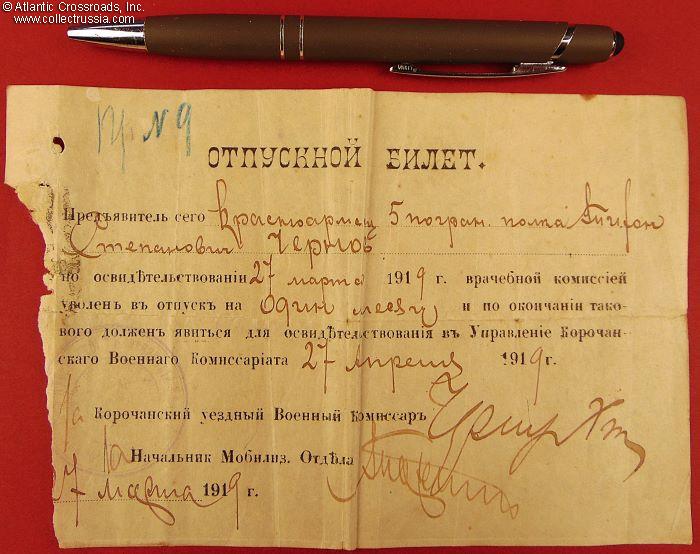 © Atlantic Crossroads, Inc.
www.collectrussia.com
Пр № 9
ОТПУСКНОЙ БИЛЕТ.
Предъявитель сего Красноармеец 5 погран. полка
Степанович Чернов
по освидѣтельствованіи 27 марта 1919 г. врачебной комиссіей
уволен въ отпуск на один месяц и по окончаніи тако-
вого должен явиться для освидѣтельствованія въ Управленіе Корочан-
скаго Военнаго Комиссаріата 27 апреля 1919 г.
За Корочанский уездный Военный Комиссаръ
За Начальник Мобилиз. Отдѣла
27 марта 1919 г.